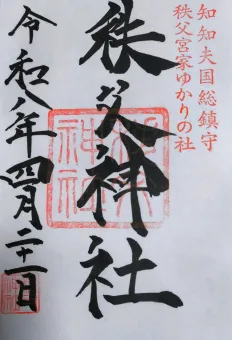 知知夫国総鎮守
秩父宮家ゆかりの社
秩父神社
令和八年四月二十一日